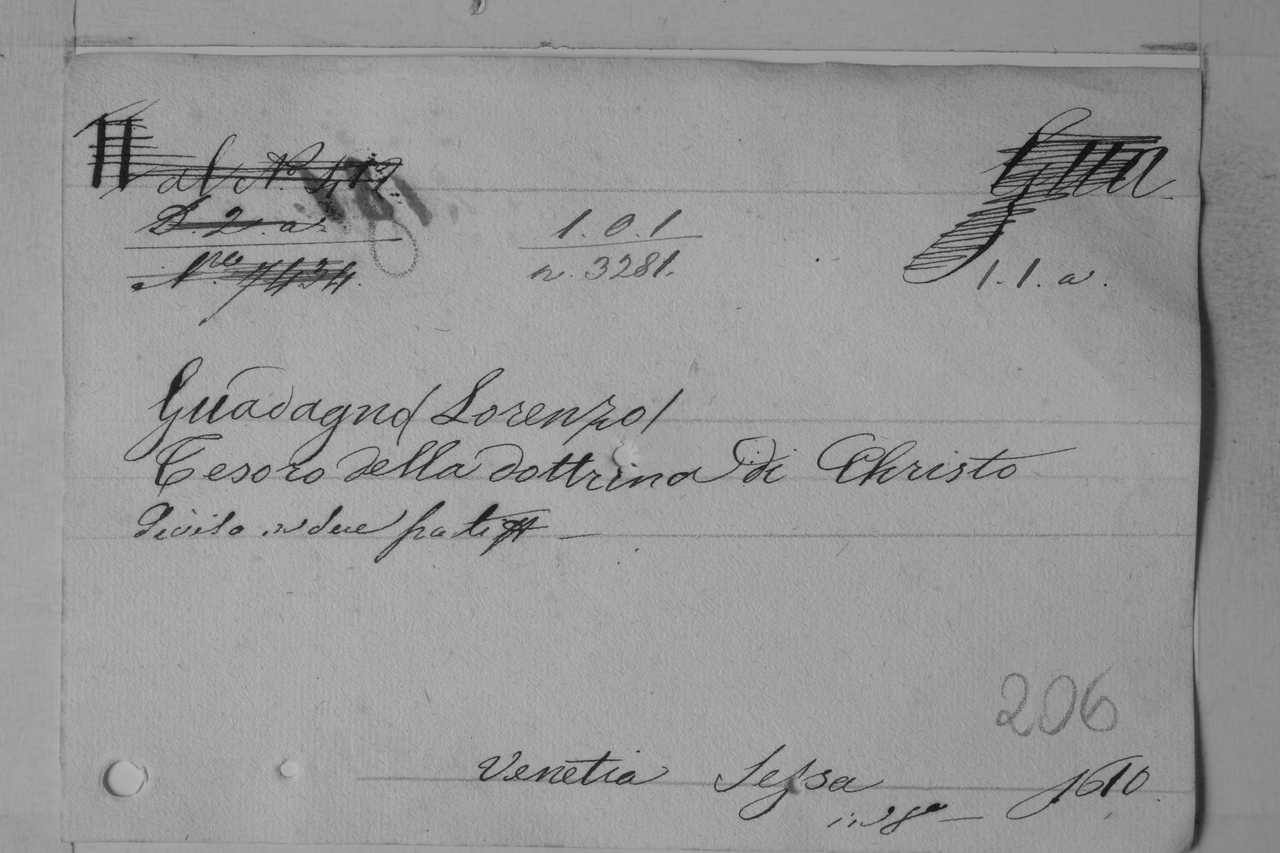 1.0.1
n. 3281.
1.1.a.
Guadagno (Lorenzo)
Tesoro della dottrina di Christo
diviso in due parti
206
Venetia Sessa 1610.
in 8º